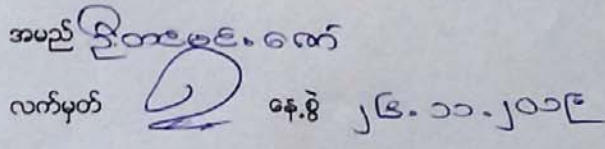 အမည် ဦးတင်မင်းဇော်
လက်မှတ် နေ့စွဲ ၂၆.၁၁.၂၀၁၉